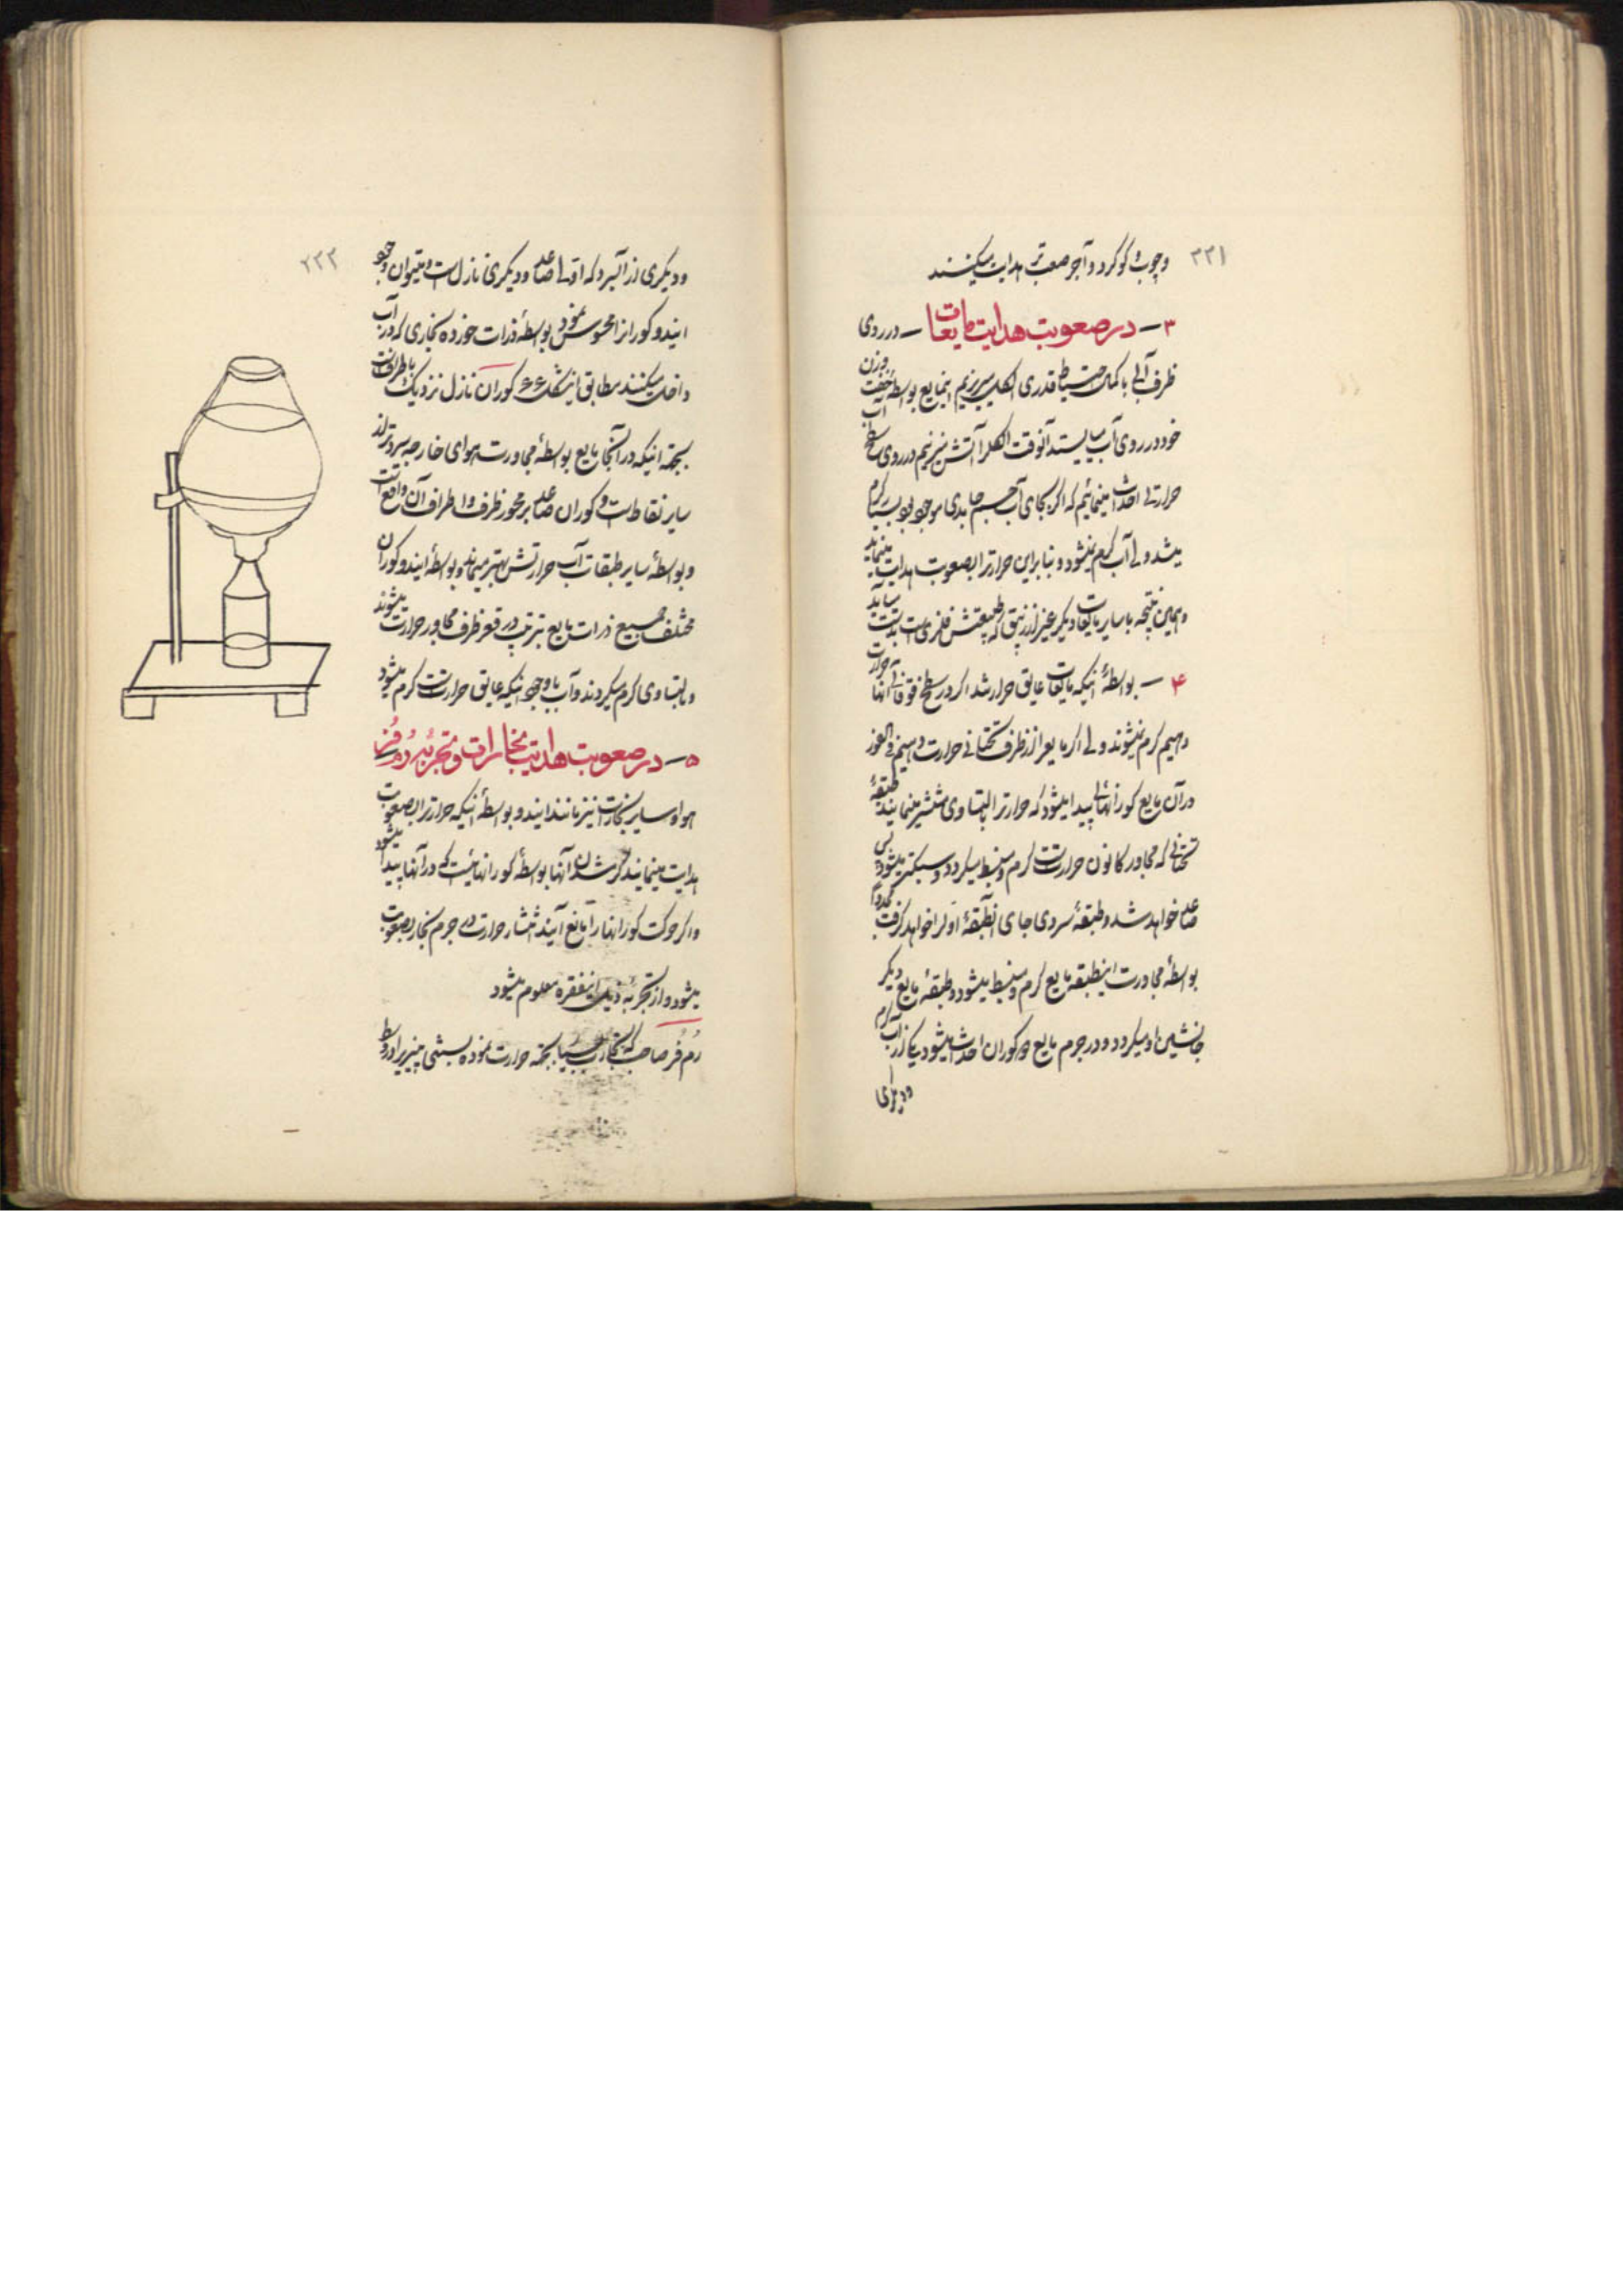 ۲۲۱
وچوب و کوگرد و آجر صعب تر هدایت میکنند
۳ – در صعوبت هدایت مایعات – در روی
ظرف آبی با کمال احتیاط قدری الکل میریزیم اینمایع بواسطهٔ خفت وزن
خود در روی آب میایستد آنوقت الکل را آتش میزنیم در روی سطح آب
حرارتی احداث مینمائیم که اگر بجای آب جسم جامدی موجود بود بسیار گرم
میشد ولی آب گرم نمیشود و بنابراین حرارت را بصعوبت هدایت مینماید
و همین نتیجه با سایر مایعات دیگر غیر از زیبق که طبیعتش فلزی است بدست میآید
۴ – بواسطهٔ اینکه مایعات عایق حرارتند اگر در سطح فوقانی آنها حرارت
دهیم گرم نمیشوند ولی اگر مایع را از طرف تحتانی حرارت دهیم فی الفور
در آن مایع کورانهائی پیدا میشود که حرارت را بالتساوی منتشر مینمایند طبقهٔ
تحتانی که مجاور کانون حرارتست گرم و منبسط میگردد و سبکتر میشود پس
صاعد خواهد شد و طبقهٔ سردی جای آنطبقهٔ اول را خواهد گرفت
بواسطهٔ مجاورت اینطبقه مایع گرم و منبسط میشود و طبقهٔ مایع دیگر
جانشین او میگردد و در جرم مایع دو کوران احداث میشود یکی از آب گرم
ودیگری
۲۲۲
ودیگری از آب سرد که اولی صاعد و دیگری نازل است و میتوان وجود
ایندو کوران را محسوس نمود بواسطهٔ ذرات خورده نجاری که در آب
داخل میکنند مطابق اینشکل ۶۶ کوران نازل نزدیک باطرافست
بجهة اینکه در آنجا مایع بواسطهٔ مجاورت هوای خارجه سردتر از
سایر نقاط است و کوران صاعد بر محور ظرف و اطراف آن واقع است
و بواسطهٔ سایر طبقات آب حرارتش بهتر میماند و بواسطهٔ ایندو کوران
مختلف جمیع ذرات مایع بترتیب در قعر ظرف مجاور حرارت میشوند
و بالتساوی گرم میگردند و آب با وجود اینکه عایق حرارتست گرم میشود
۵ – در صعوبت هدایت بخارات و تجربه رُمفُر
هوا و سایر بخارات نیز مانند اینند و بواسطهٔ اینکه حرارت را بصعوبت
هدایت مینمایند گرم شدن آنها بواسطهٔ کورانهائیست که در آنها پیدا میشود
و اگر حرکت کورانها را مانع آیند انتشار حرارت در جرم بخار بصعوبت
میشود و از تجربه ذیل اینفقره معلوم میشود
رُم فُر صاحب که تجارب بسیار بجهة حرارت نموده بستنی پنیر را در وسط